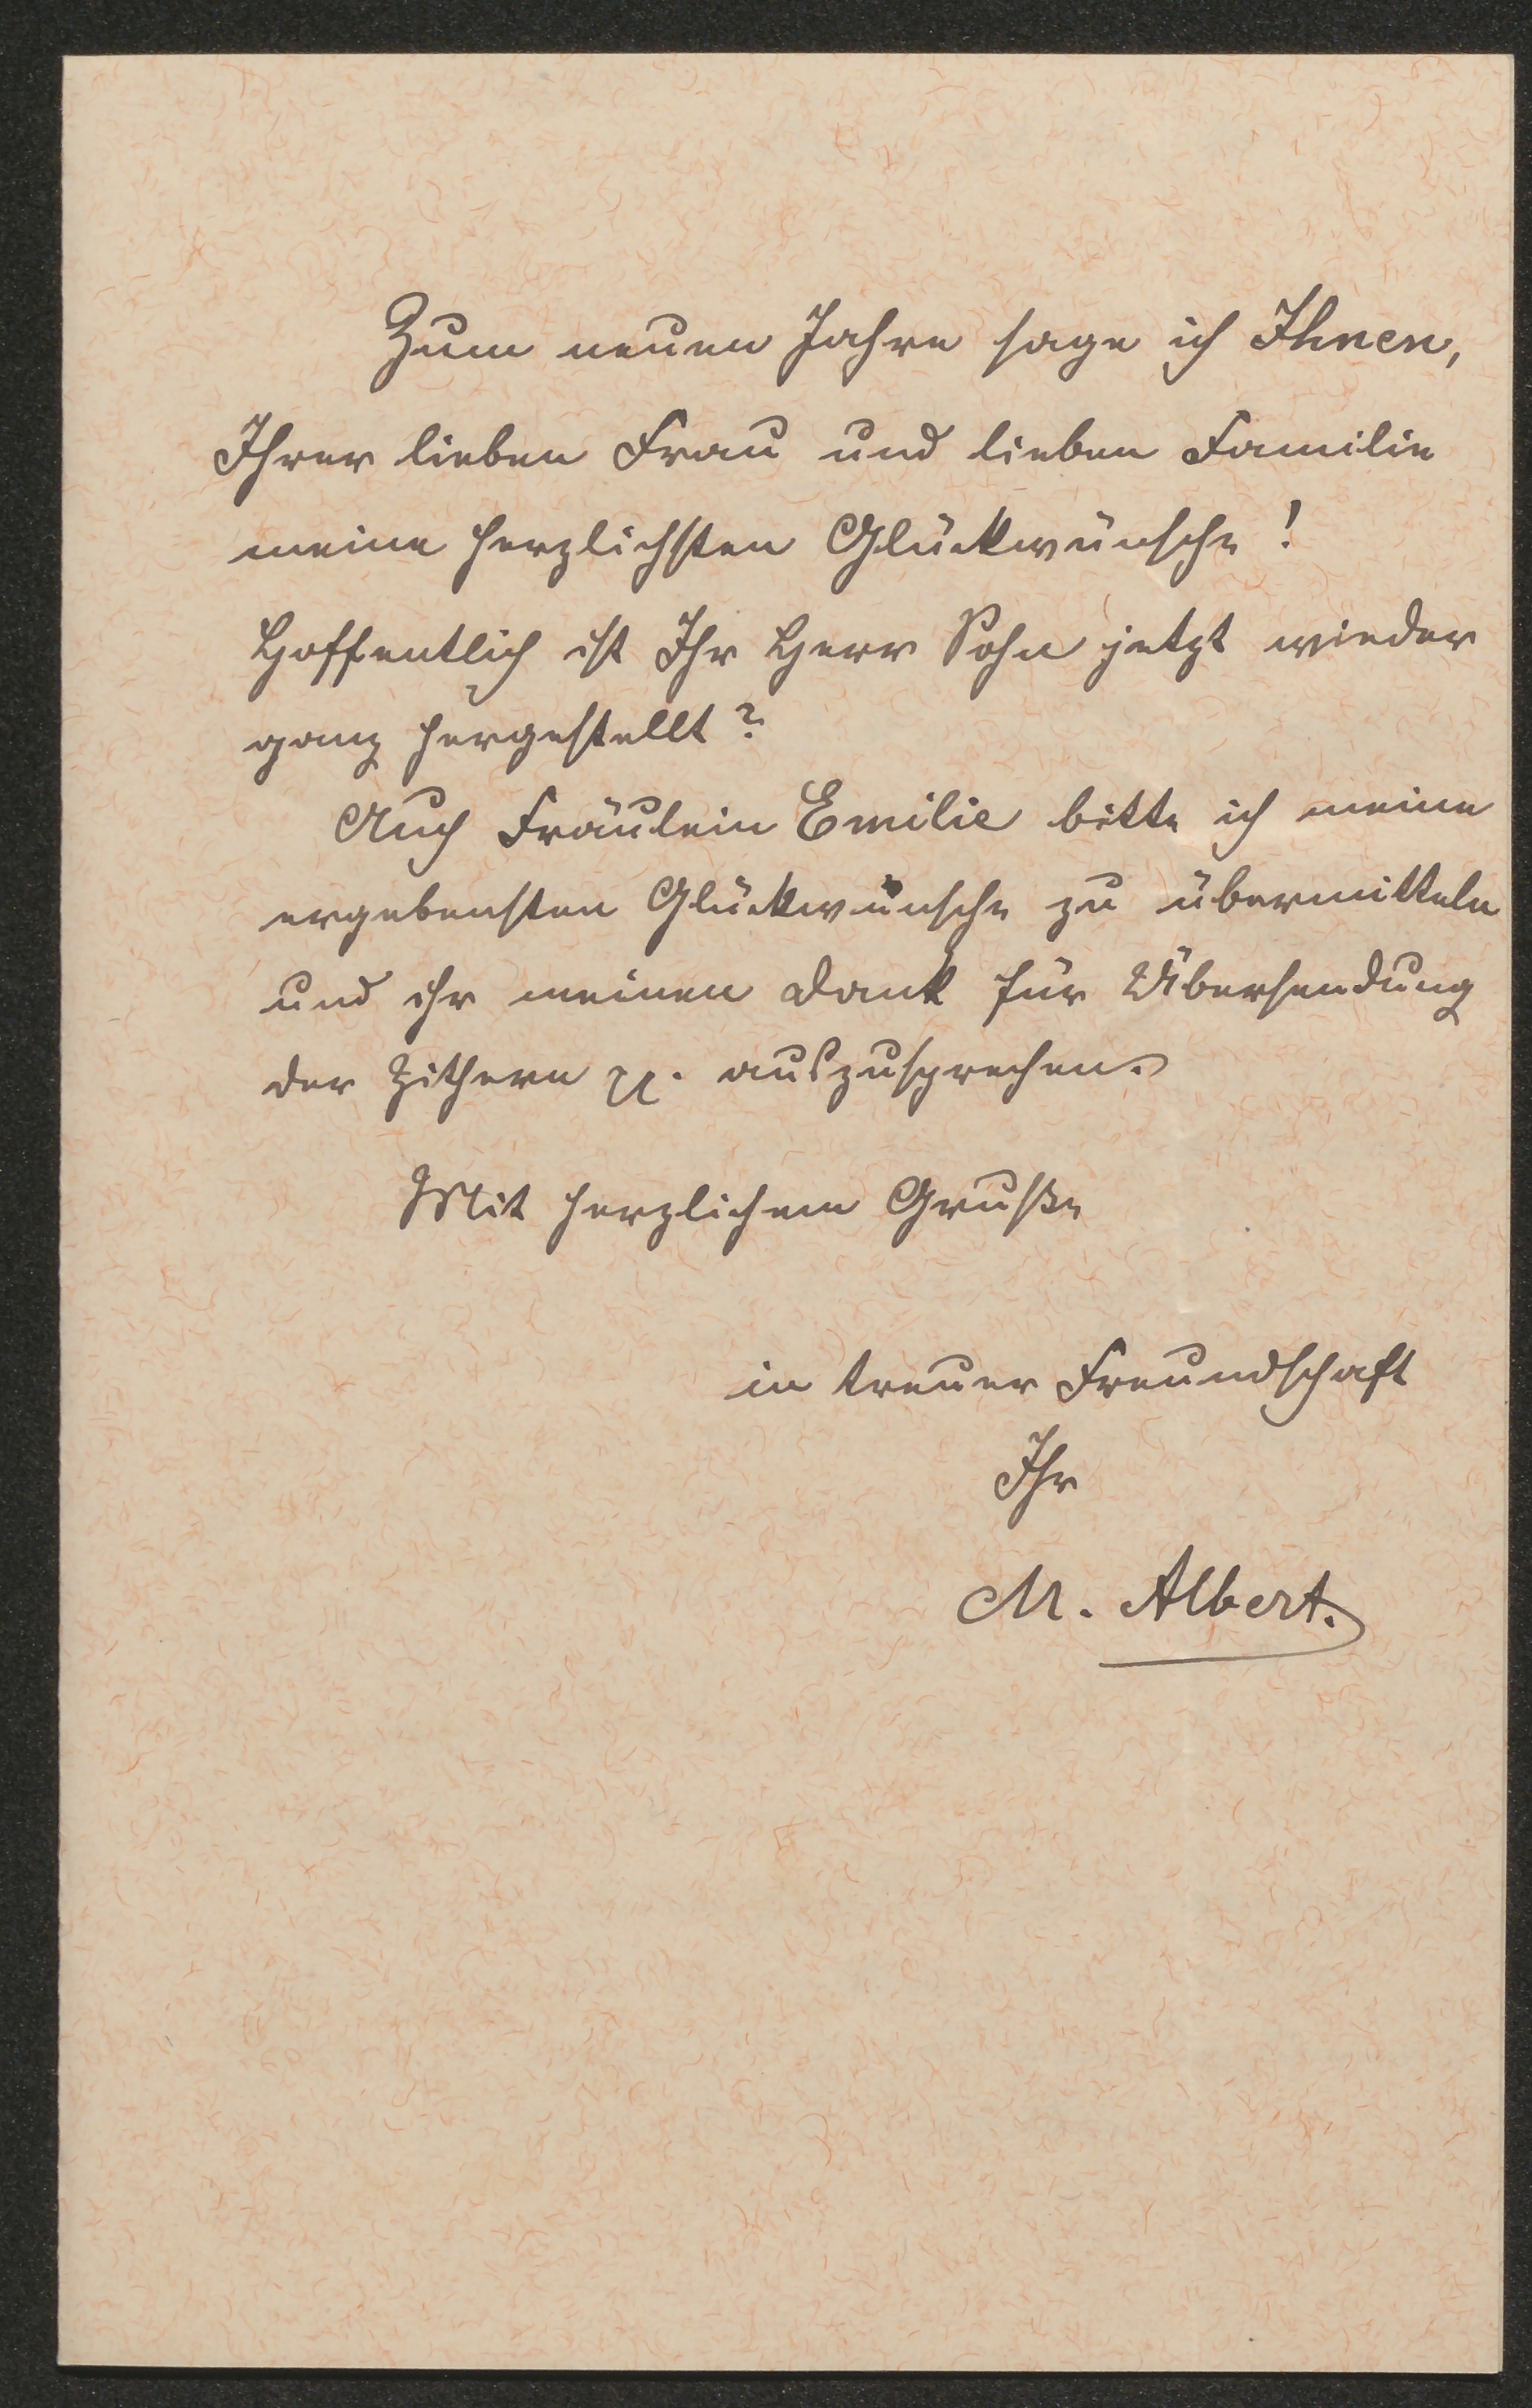 Zum neuen Jahre sage ich Ihnen,
Ihrer lieben Frau und lieben Familie
meine herzlichsten Glückwünsche!
Hoffentlich ist Ihr Herr Sohn jetzt wieder
ganz hergestellt?
Auch Fräulein Emilie bitte ich meine
ergebensten Glückwünsche zu übermitteln
und ihr meinen Dank für Übersendung
der Zithern pp. auszusprechen.
Mit herzlichem Gruße
in treuer Freundschaft
Ihr
M. Albert.